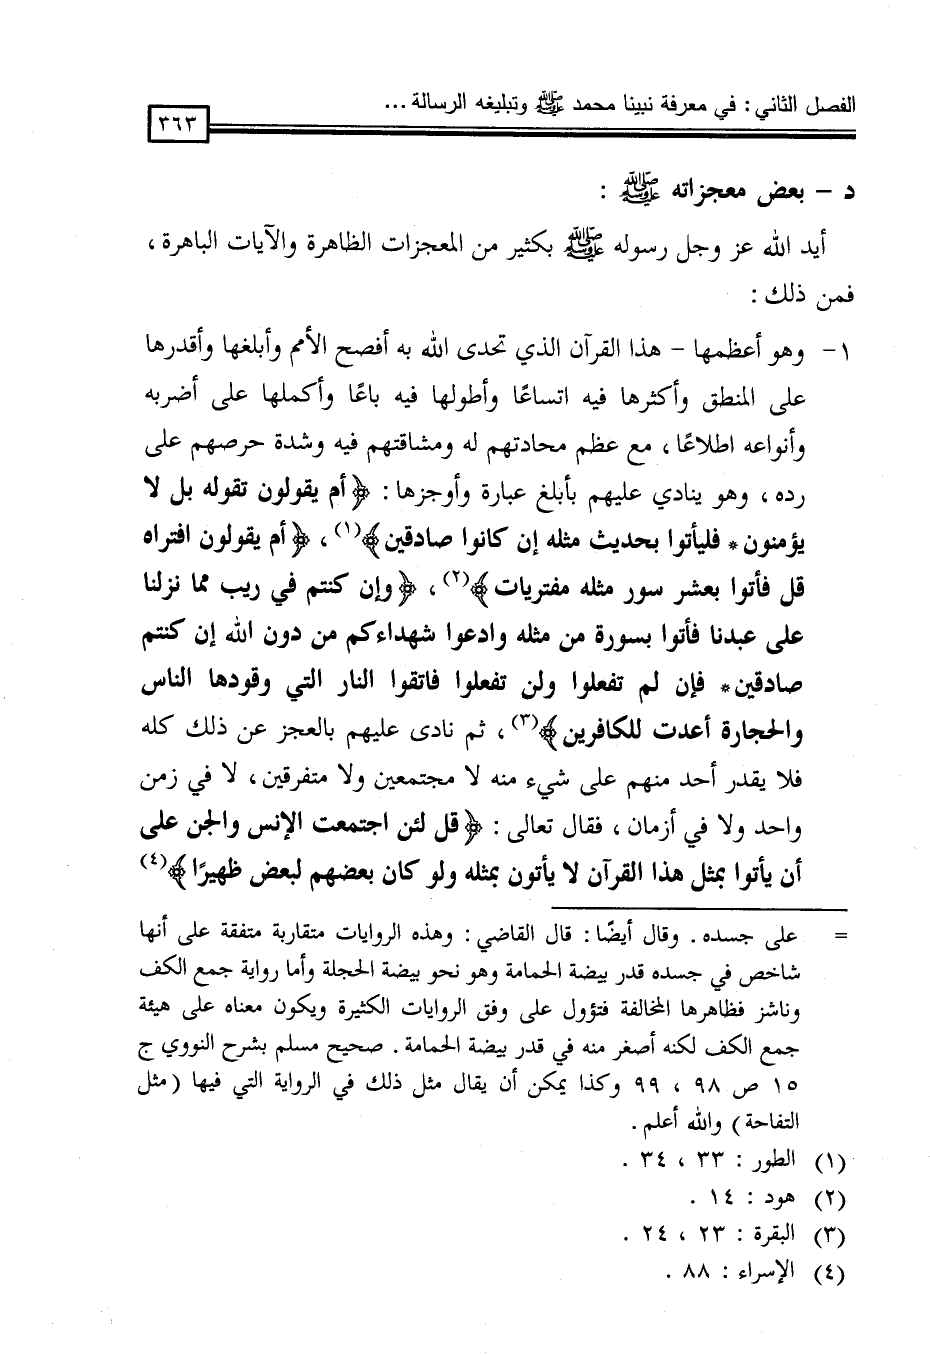 الفصل الثاني : في معرفة نبينا محمد ﷺ وتبليغه الرسالة ...
٣٦٣
د – بعض معجزاته ﷺ :
أيد الله عز وجل رسوله ﷺ بكثير من المعجزات الظاهرة والآيات الباهرة ،
فمن ذلك :
١- وهو أعظمها – هذا القرآن الذي تحدى الله به أفصح الأمم وأبلغها وأقدرها
على المنطق وأكثرها فيه اتساعًا وأطولها فيه باعًا وأكملها على أضربه
وأنواعه اطلاعًا ، مع عظم محادتهم له ومشاقتهم فيه وشدة حرصهم على
رده ، وهو ينادي عليهم بأبلغ عبارة وأوجزها : ﴿أم يقولون تقوله بل لا
يؤمنون* فليأتوا بحديث مثله إن كانوا صادقين﴾(١) ، ﴿أم يقولون افتراه
قل فأتوا بعشر سور مثله مفتريات﴾(٢) ، ﴿وإن كنتم في ريب مما نزلنا
على عبدنا فأتوا بسورة من مثله وادعوا شهداءكم من دون الله إن كنتم
صادقين* فإن لم تفعلوا ولن تفعلوا فاتقوا النار التي وقودها الناس
والحجارة أعدت للكافرين﴾(٣) ، ثم نادى عليهم بالعجز عن ذلك كله
فلا يقدر أحد منهم على شيء منه لا مجتمعين ولا متفرقين ، لا في زمن
واحد ولا في أزمان ، فقال تعالى : ﴿قل لئن اجتمعت الإنس والجن على
أن يأتوا بمثل هذا القرآن لا يأتون بمثله ولو كان بعضهم لبعض ظهيرًا﴾(٤)
= على جسده . وقال أيضًا : قال القاضي : وهذه الروايات متقاربة متفقة على أنها
شاخص في جسده قدر بيضة الحمامة وهو نحو بيضة الحجلة وأما رواية جمع الكف
وناشز فظاهرها المخالفة فتؤول على وفق الروايات الكثيرة ويكون معناه على هيئة
جمع الكف لكنه أصغر منه في قدر بيضة الحمامة . صحيح مسلم بشرح النووي ج
١٥ ص ٩٨ ، ٩٩ وكذا يمكن أن يقال مثل ذلك في الرواية التي فيها (مثل
التفاحة) والله أعلم .
(١) الطور : ٣٣ ، ٣٤ .
(٢) هود : ١٤ .
(٣) البقرة : ٢٣ ، ٢٤ .
(٤) الإسراء : ٨٨ .